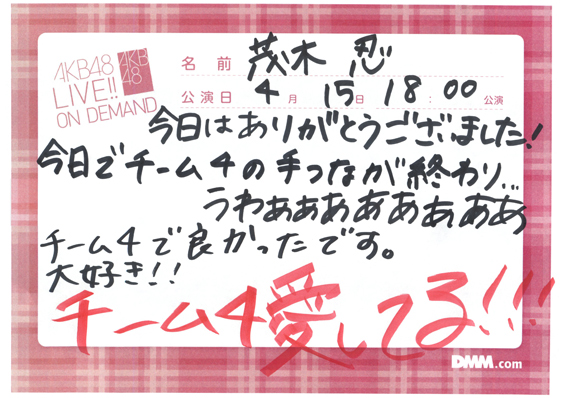 AKB48
LIVE!!
ON DEMAND
AKB
48
名前 茂木 忍
公演日 4月 15日 18:00 公演
今日はありがとうございました!
今日でチーム4の手つなが終わり...
うわぁぁぁぁぁぁぁぁ
チーム4で良かったです。
大好き!!
チーム4愛してる!!!
DMM.com